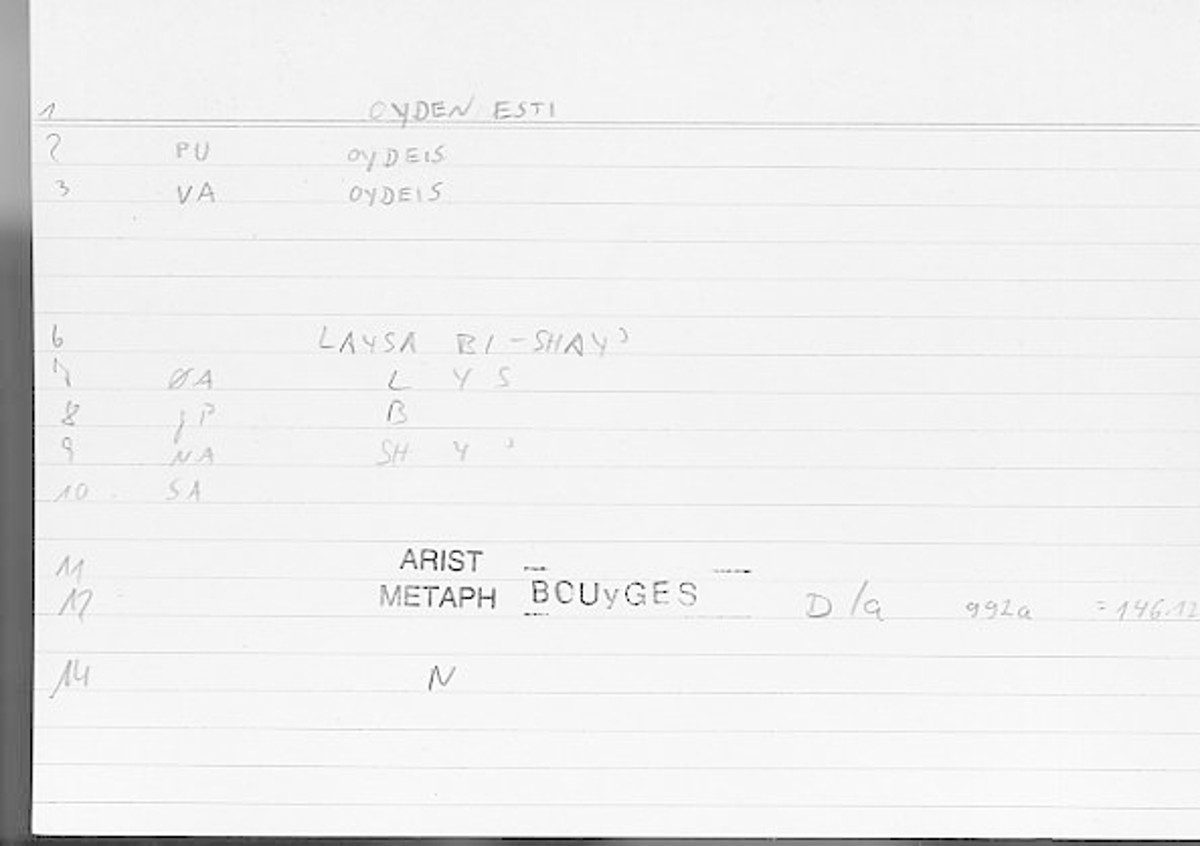 1 OYDEN ESTI
2 PU OYDEIS
3 VA OYDEIS
6 LAYSA BI-SHAY'
7 ØA L Y S
8 gP B
9 NA SH Y '
10 SA
11 ARIST
12 METAPH BOUyGES D/a 992a =146.12
14 N